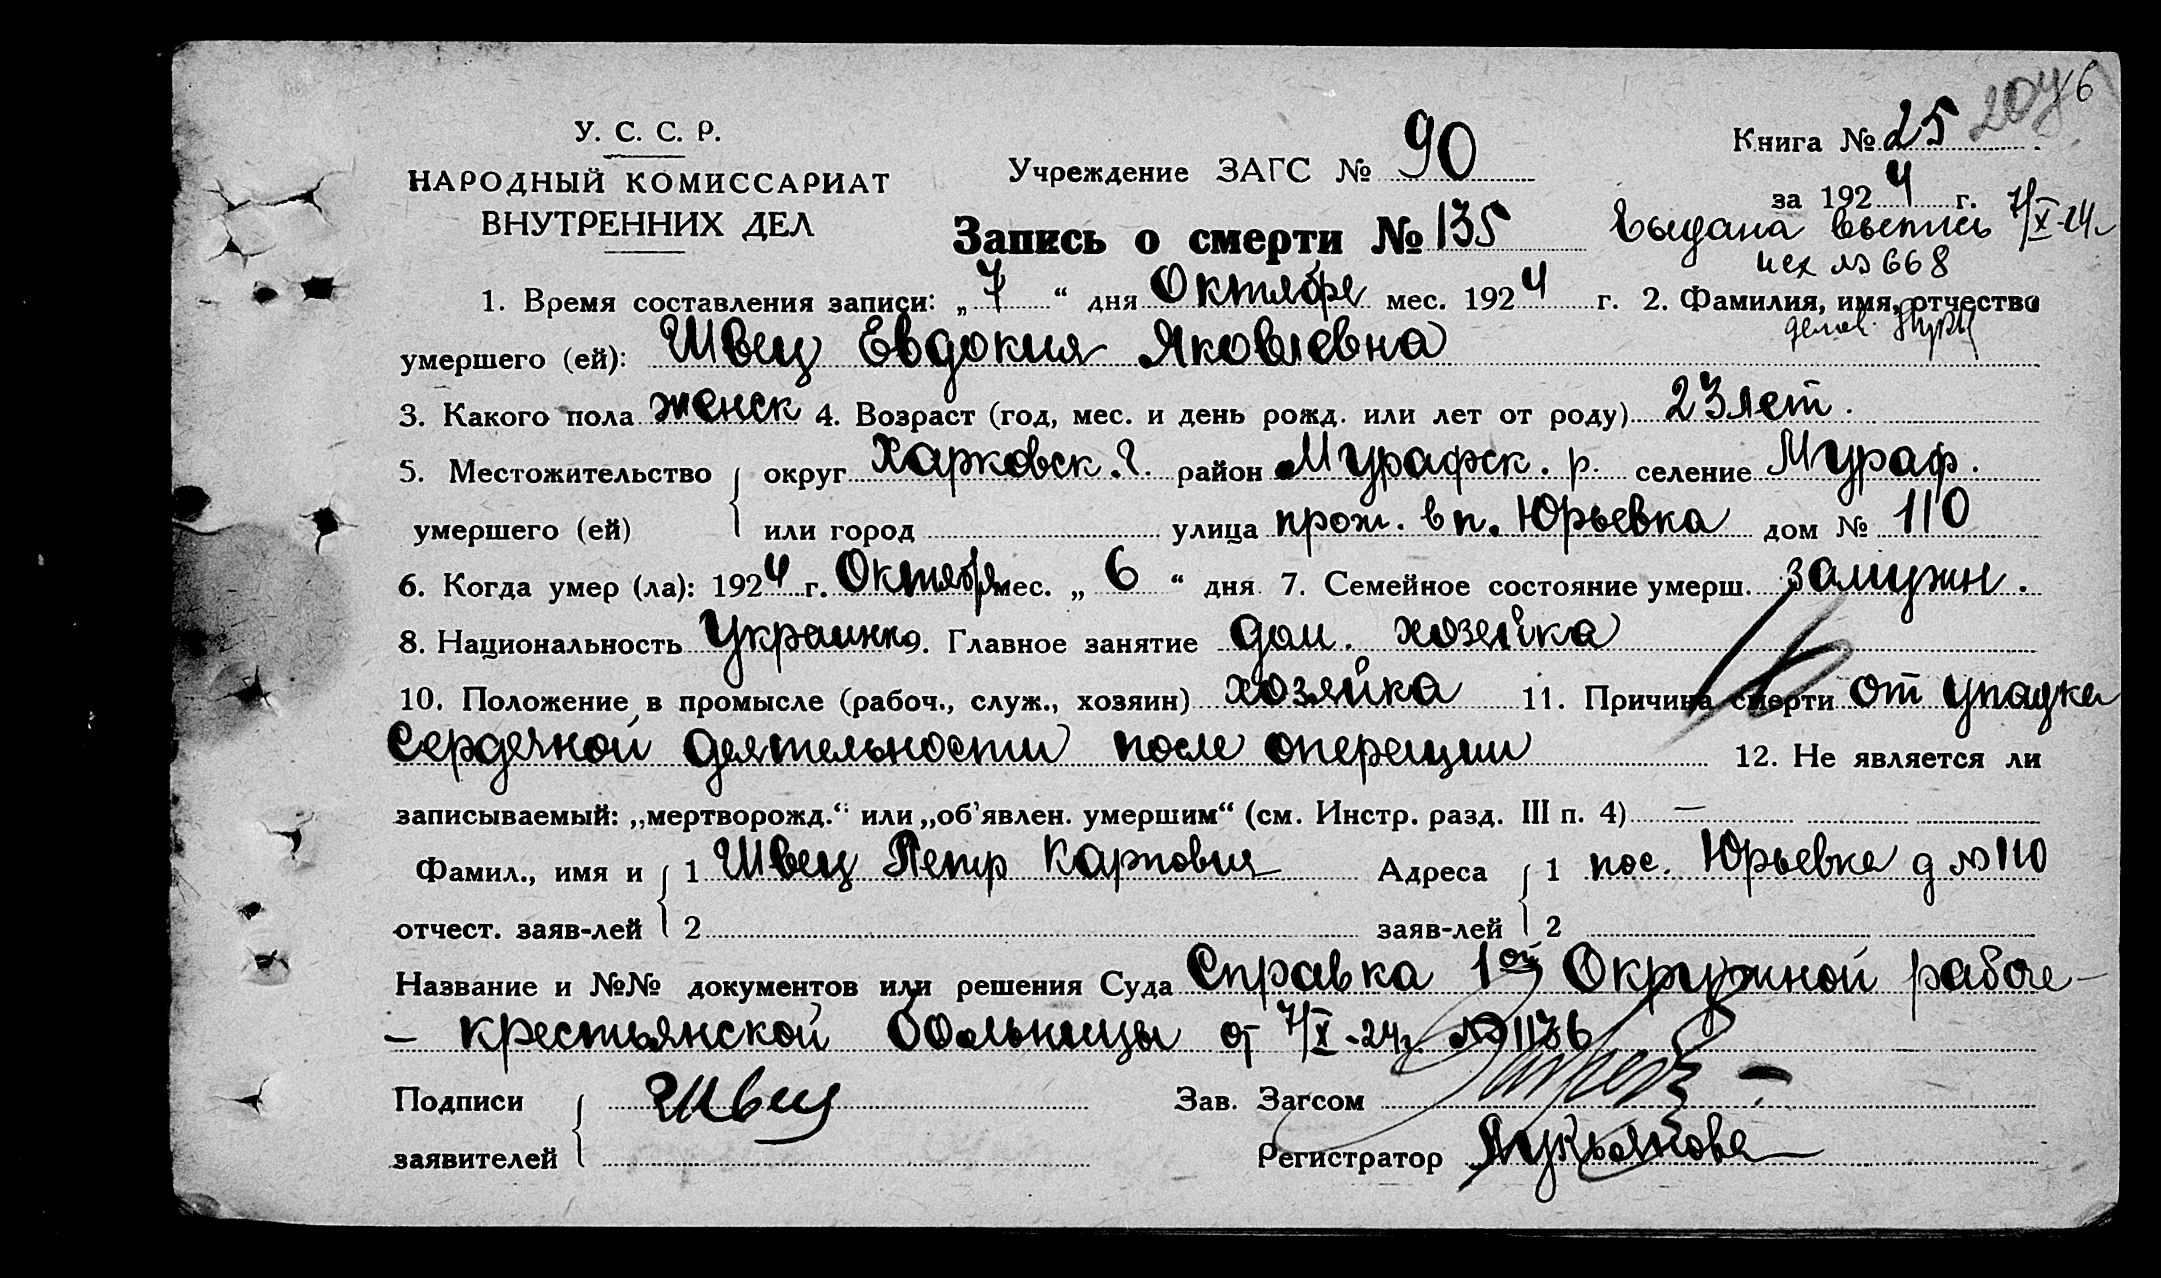 2076
У. С. С. Р.
НАРОДНЫЙ КОМИССАРИАТ
ВНУТРЕННИХ ДЕЛ
Учреждение ЗАГС № 90
Книга № 25
за 1924 г.
Запись о смерти № 135
Выдана выпись 7/X-24г
исх № 668
1. Время составления записи: „7“ дня Октября мес. 1924 г. 2. Фамилия, имя, отчество
умершего (ей): Швец Евдокия Яковлевна
3. Какого пола женск 4. Возраст (год, мес. и день рожд. или лет от роду) 23 лет.
5. Местожительство { округ Харковск. г. район Мурафск. р. селение Мураф.
умершего (ей) или город улица прож. в п. Юрьевка дом № 110
6. Когда умер (ла): 1924 г. Октября мес. „6“ дня 7. Семейное состояние умерш. замужн.
8. Национальность Украинка 9. Главное занятие дом. хозяйка
10. Положение в промысле (рабоч., служ., хозяин) хозяйка 11. Причина смерти от упадка
сердечной деятельности после операции 12. Не является ли
записываемый: „мертворожд.“ или „об’явлен. умершим“ (см. Инстр. разд. III п. 4) —
Фамил., имя и { 1 Швец Петр Карпович Адреса { 1 пос. Юрьевка д № 110
отчест. заяв-лей 2 заяв-лей 2
Название и №№ документов или решения Суда Справка 1ой Окружной рабоче-
- крестьянской больницы от 7/X-24г. № 1136
Подписи { Швец Зав. Загсом
заявителей Регистратор Лукьянова